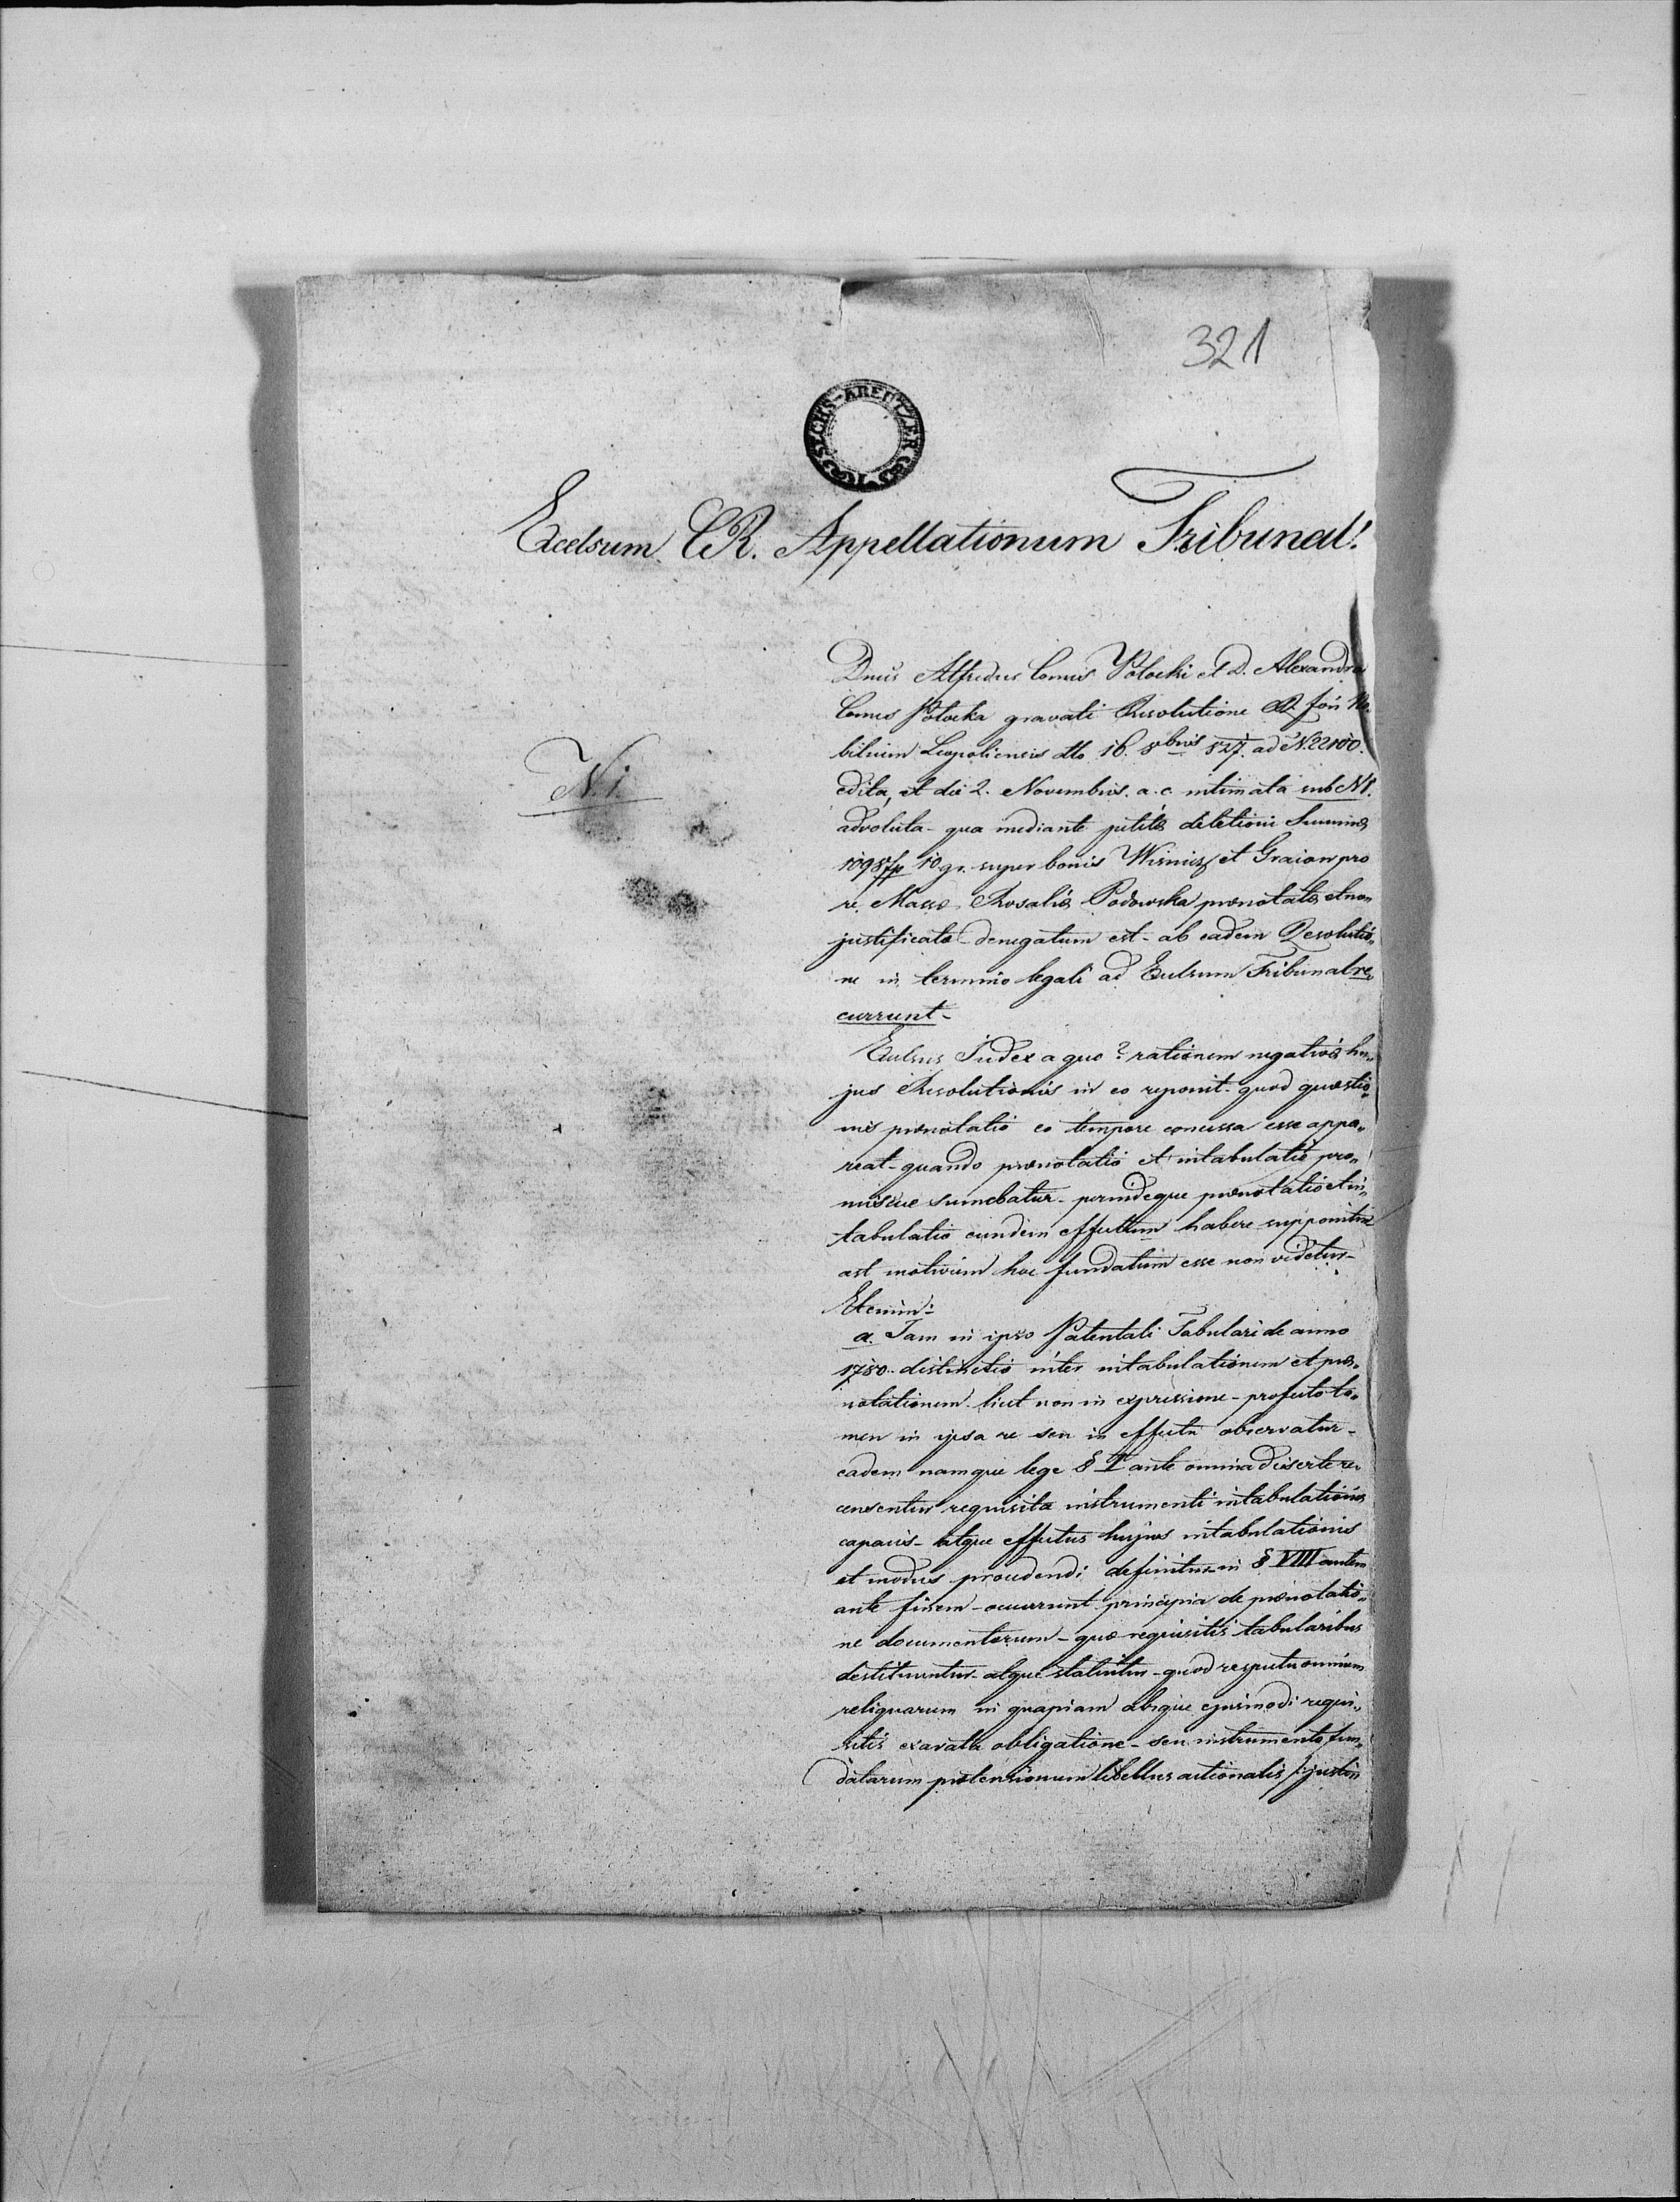 321
SECHS-KREUTZER
Excelsum CR. Appellationum Tribunal!
N. 1.
Dnus Alfredus Comes Potocki et D. Alexandra
Comes Potocka gravati Resolutione CR. Fori No„
bilium Leopoliensis dto 16. 8bris 827. ad N. 22100.
edita, et die 2. Novembris. a. c. intimata sub N1.
advoluta - qua mediante petitæ deletioni Summæ
1098 fp 10 gr. super bonis Wisnicz et Graion pro
re Massæ Rosaliæ Padowska prænotatæ et non
justificatæ denegatum est - ab eadem Resolutio„
ne in termino legali ad Exelsum Tribunal re„
currunt -
Exelsus Judex a quo? rationem negativæ hu„
jus Resolutionis in eo reponit - quod quæstio„
nis prænotatio eo tempore concessa esse appa„
reat - quando prænotatio et intabulatio pro„
miscue sumebatur - perindeque prænotatio et in„
tabulatio eundem effectum habere supponitur
ast motivum hoc fundatum esse non videtur -
Etenim:
a. Jam in ipso Patentali Tabulari de anno
1780. distinctio inter intabulationem et præ„
notationem - licet non in expressione - profecto ta„
men in ipsa re seu in effectu observatur -
eadem namque lege § I ante omnia diserte re„
censentur requisita instrumenti intabulationis
capacis - atque effectus hujus intabulationis
et modus procedendi definitur - in § VIII autem
ante finem - occurrunt principia de prænotatio„
ne documentorum - quæ requisitis tabularibus
destituuntur - atque statuitur - quod respectu omnium
reliquarum in quapiam absque ejusmodi requi„
sitis exarata obligatione - seu instrumento fun„
datarum prætensionum libellus actionalis /: justi„